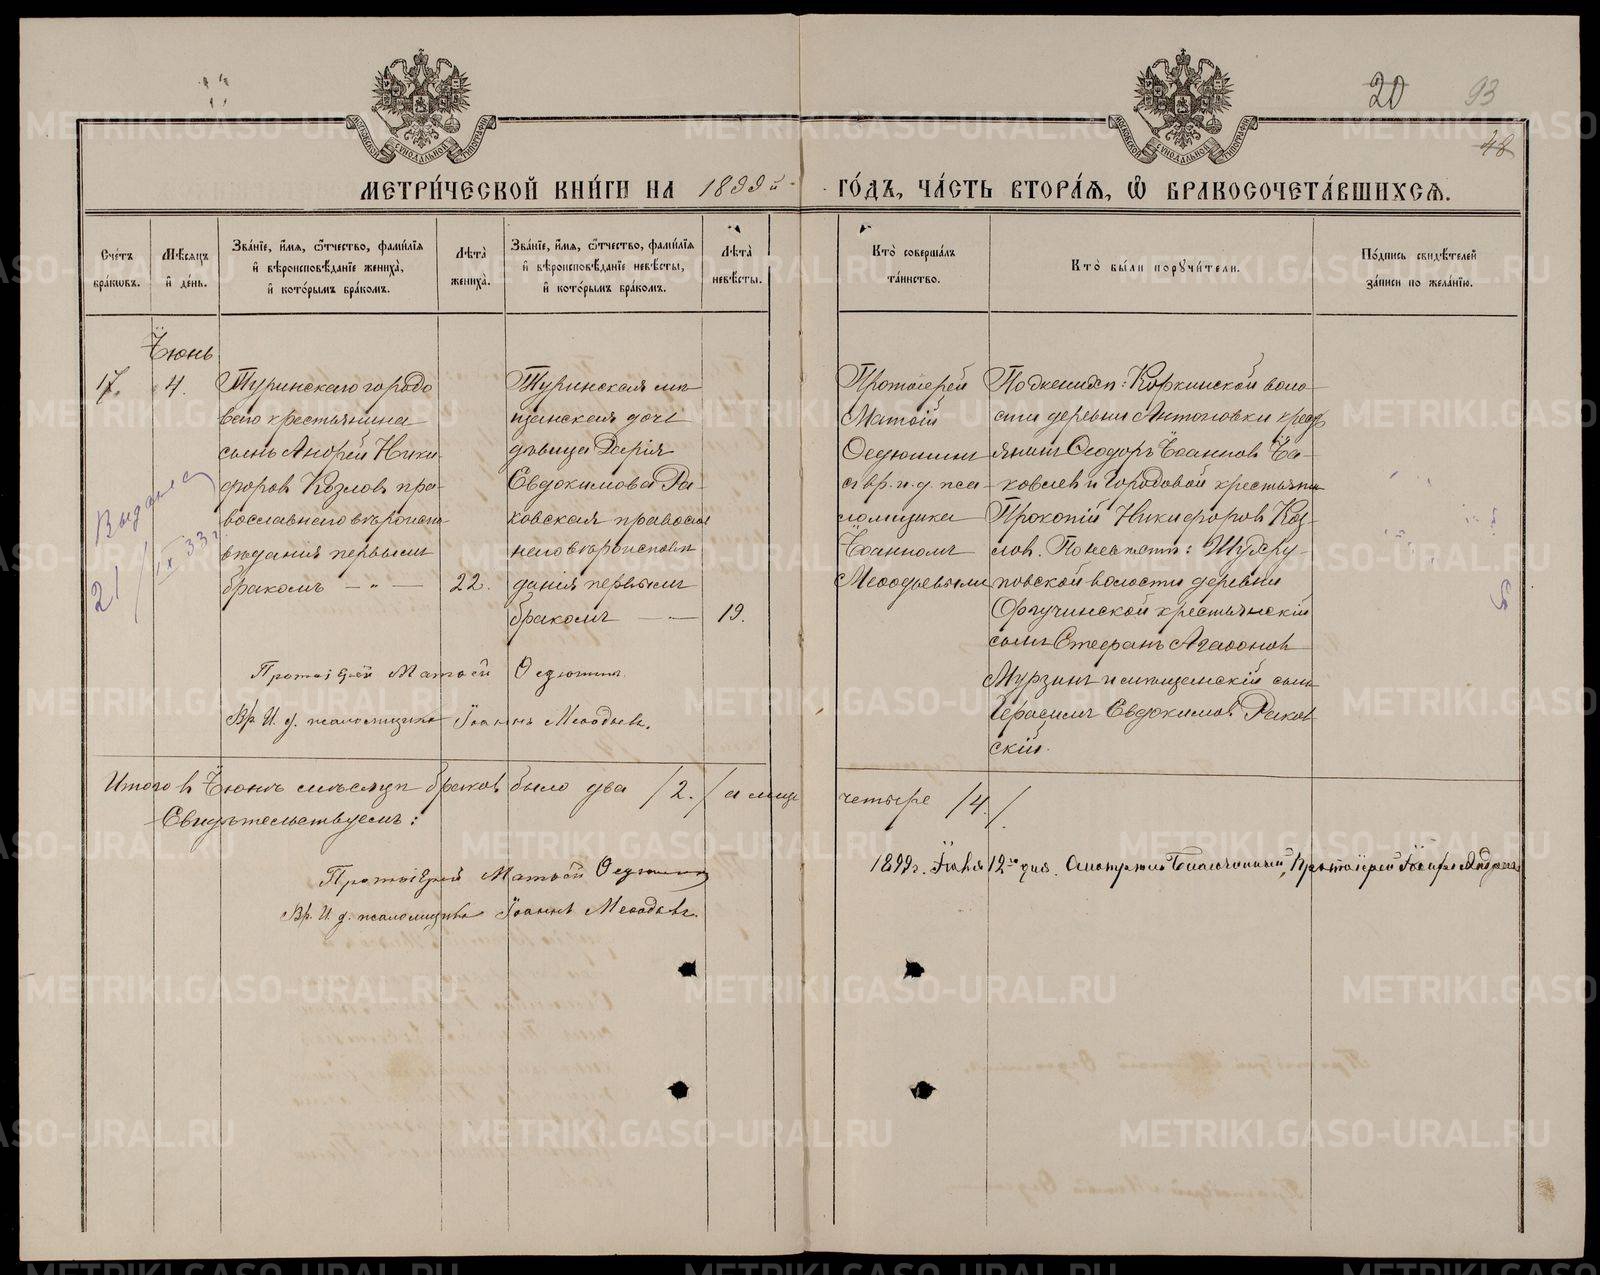 20 93
48
МЕТРИ́ЧЕСКОЙ КНИ́ГИ НА 1899й ГО́ДЪ, ЧА́СТЬ ВТОРА́Я, Ѽ БРАКОСОЧЕТА́ВШИХСЯ.
Сче́тъ бра́ковъ.
Мѣ́сяцъ и де́нь.
Зва́нїе, и́мя, ѻ҆́тчество, фами́лїя и вѣроисповѣ́данїе жениха̀, и кото́рымъ бра́комъ.
Лѣта̀ жениха̀.
Зва́нїе, и́мя, ѻ҆́тчество, фами́лїя и вѣроисповѣ́данїе невѣ́сты, и кото́рымъ бра́комъ.
Лѣта̀ невѣ́сты.
Кто̀ соверша́лъ та́инство.
Кто̀ бы́ли поручи́тели.
По́дпись свидѣ́телей за́писи по жела́нїю.
Іюнь
17. 4.
Туринскаго городо
ваго крестьянина
сынъ Андрей Ники
форовъ Козловъ пра-
вославнаго вѣроиспо
вѣданія первымъ
бракомъ — „ — 22.
Туринская мѣ
щанская дочь
дѣвица Дарія
Евдокимова Ра-
ковская православ
наго вѣроисповѣ
данія первымъ
бракомъ — 19.
Протоіерей
Матѳій
Ѳедюшинъ
съ вр. и. д. пса
ломщика
Іоанномъ
Меѳодьевымъ
По женихѣ: Коркинской воло
сти деревни Антоновки крест
янинъ Ѳеодоръ Іоанновъ Іа-
ковлевъ и городовой крестьянинъ
Прокопій Никифоровъ Коз-
ловъ. По невѣстѣ: Шухру-
повской волости деревни
крестьянскій
сынъ Стефанъ Агаѳоновъ
Мурзинъ и мѣщанскій сынъ
Герасимъ Евдокимовъ Раков
скій.
Выдана
21/IX 33 г.
Протоіерей Матѳій Ѳедюшинъ.
Вр. И. д. псаломщика Іоаннъ Меѳодьевъ.
Итого въ Іюнѣ мѣсяцѣ браковъ было два /2./ а лицъ четыре /4./
Свидѣтельствуемъ:
Протоіерей Матѳій Ѳедюшинъ
Вр. И. д. псаломщика Іоаннъ Меѳодьевъ.
1899 г. 12го дня. Смотрѣлъ Благочинный, Протоіерей
METRIKI.GASO-URAL.RU